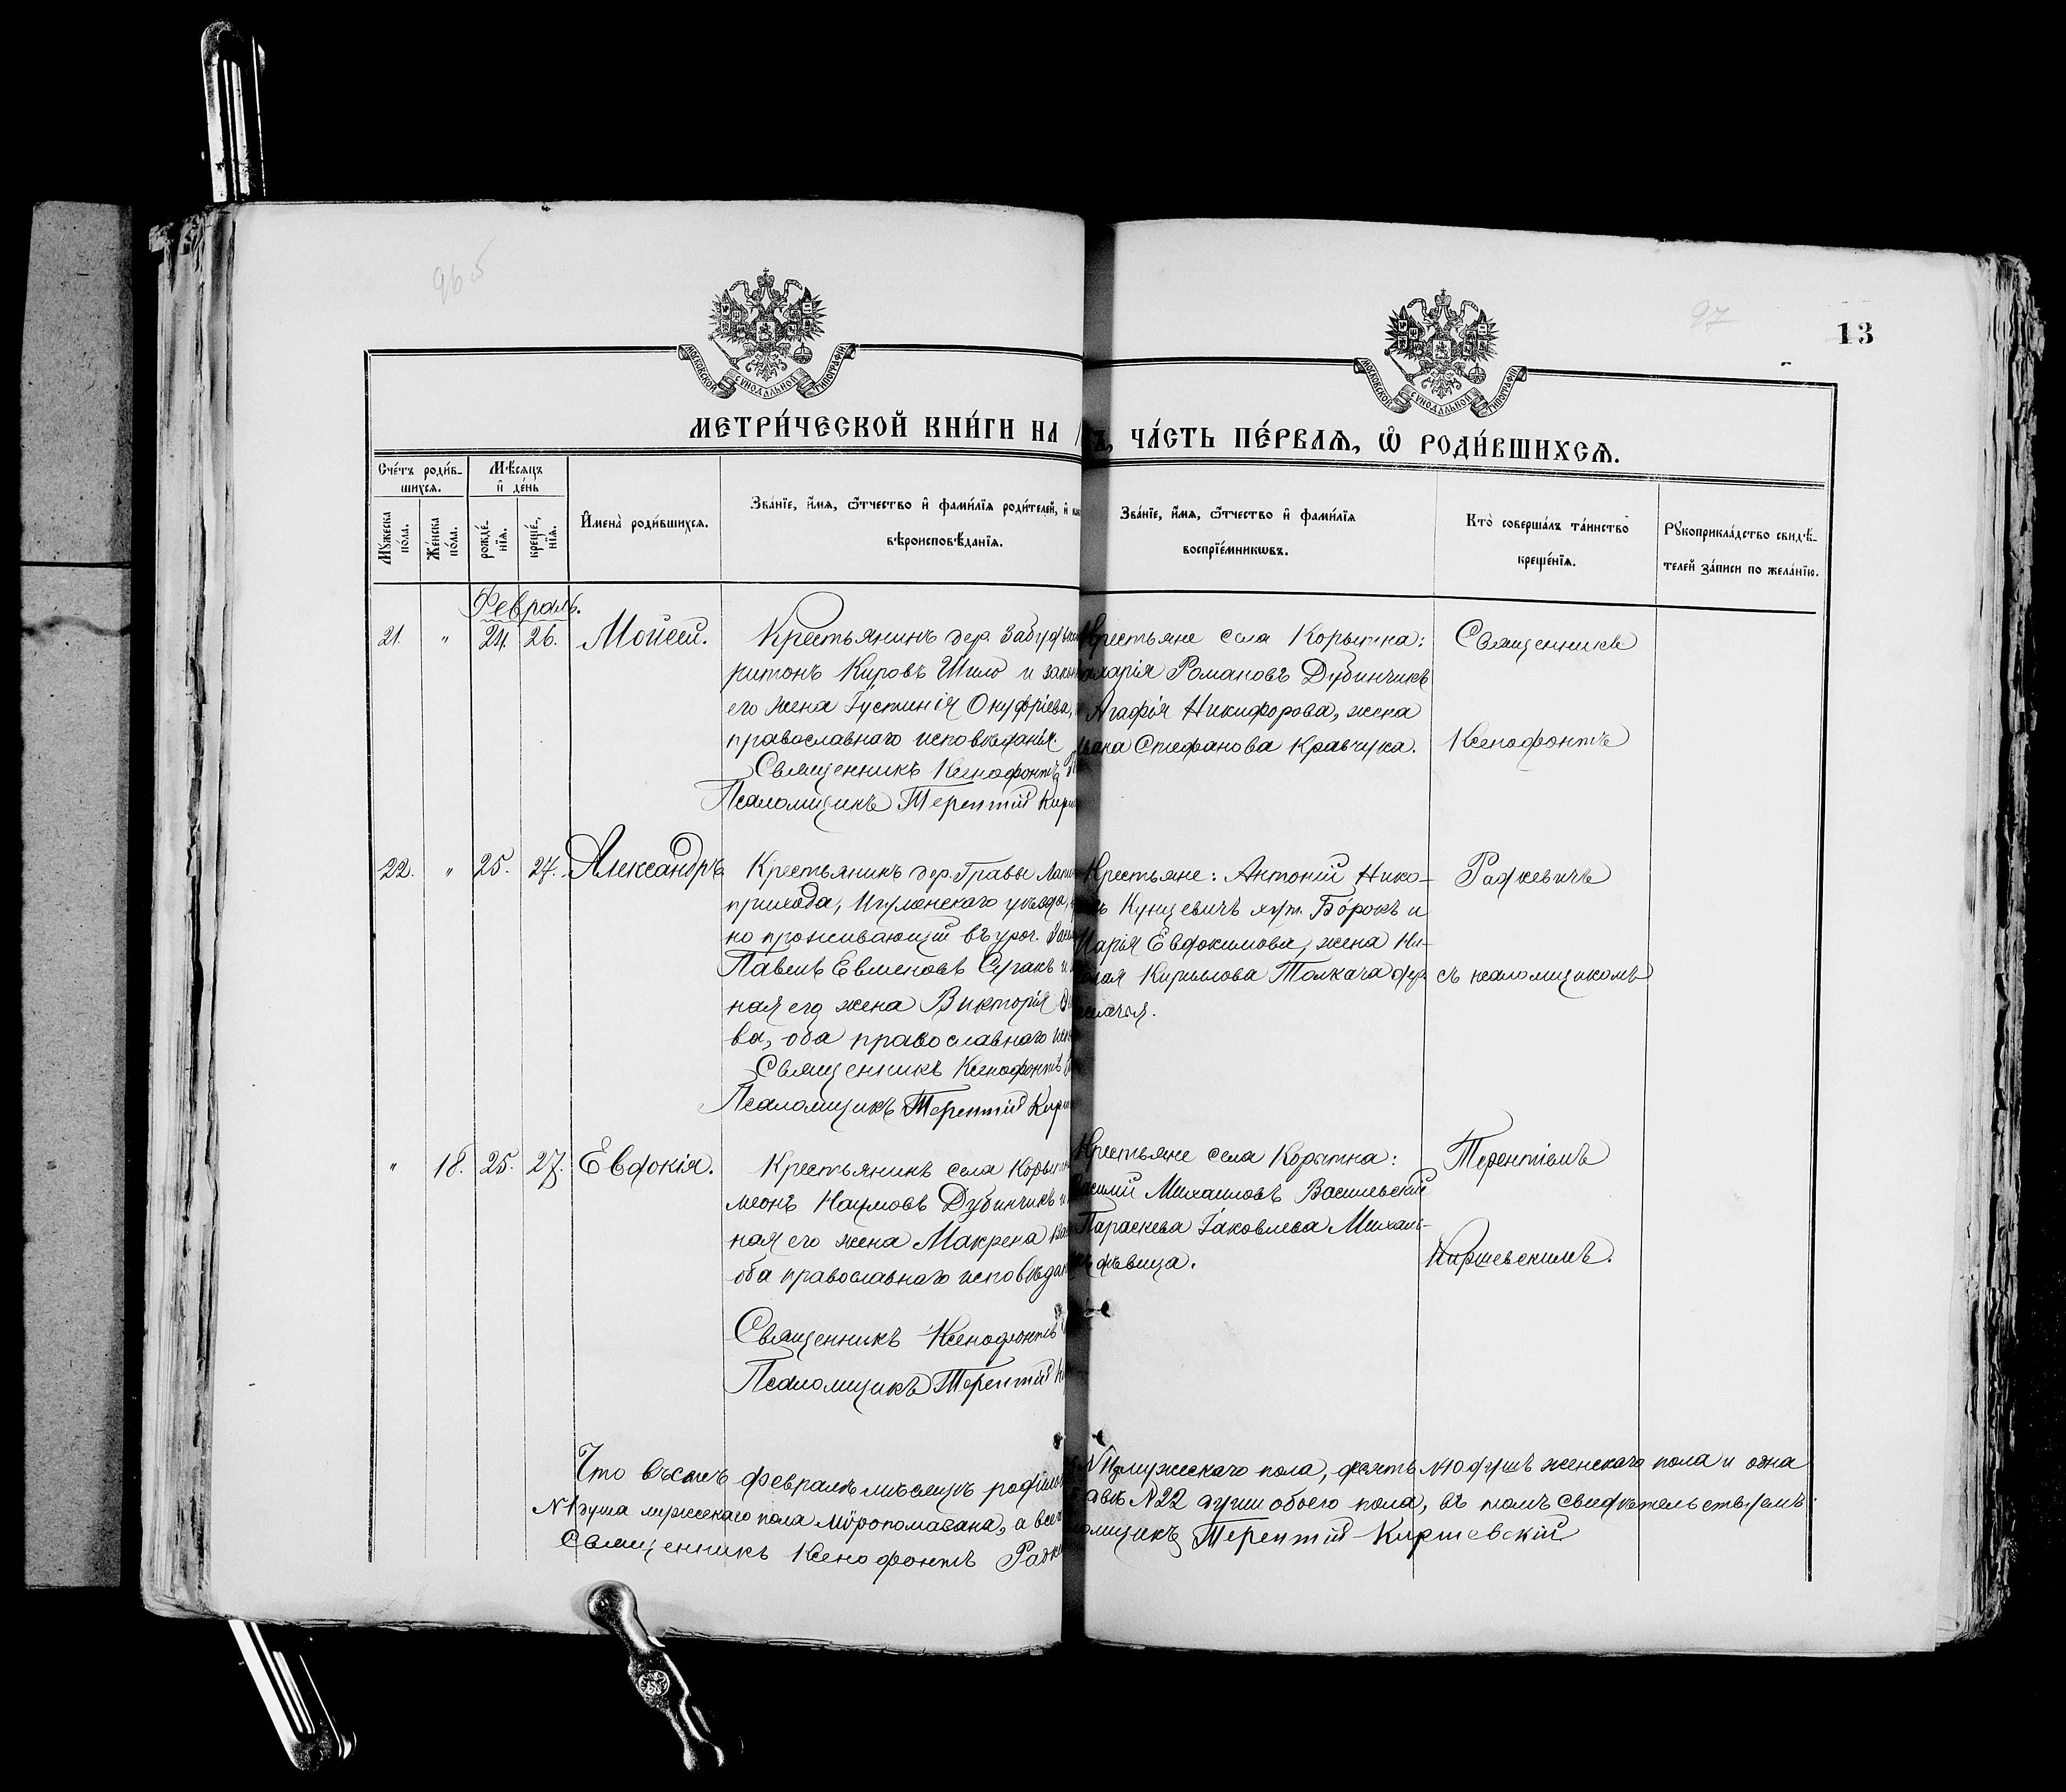 96об
97
13
МОСКОВСКОЙ СѴНОДАЛЬНОЙ ТИПОГРАФІИ
МОСКОВСКОЙ СѴНОДАЛЬНОЙ ТИПОГРАФІИ
МЕТРИ́ЧЕСКОЙ КНИ́ГИ НА
Ъ, ЧА́СТЬ ПЕ́РВАѦ, Ѿ РОДИ́ВШИХСѦ.
Сче́тъ роди́в-
шихсѧ.
Мѣ́сѧцъ
и҆ де́нь
Мꙋ́жеска
по́ла.
Же́нска
по́ла.
рожде́-
нїѧ.
креще́-
нїѧ.
И҆мена̀ роди́вшихсѧ.
Зва́нїе, и҆́мѧ, ѻ҆́тчество и҆ фами́лїѧ роди́телей, и҆
вѣроисповѣ́данїѧ.
Зва́нїе, и҆́мѧ, ѻ҆́тчество и҆ фами́лїѧ
воспрїе́мникѡвъ.
Кто̀ соверша́лъ та́инство
креще́нїѧ.
Рꙋкоприкла́дство свидѣ́-
телей за́писи по жела́нїю.
Февраль.
21. " 24. 26. Моисей.
Крестьянинъ дер.
ритонъ Кировъ Шило и
его жена Іустинія Онуфріева,
православнаго исповѣданія.
Священникъ Ксенофонтъ
Псаломщикъ Терентій
Крестьяне села Корытна:
Романовъ Дубинчикъ
Агафія Никифорова, жена
Стефанова Кравчука.
Священникъ
Ксенофонтъ
22. " 25. 27. Александръ
Крестьянинъ дер. Гравы
прихода, Игуменскаго уѣзда,
но проживающій въ уроч.
Павелъ Евменовъ Сугакъ и
ная его жена Викторія
ва, оба православнаго
Священникъ Ксенофонтъ
Псаломщикъ Терентій
Крестьяне: Антоній Нико-
Кунцевичъ хут. Борокъ и
Марія Евдокимова, жена Ни-
Кирилова Толкача дер.
Радкевичъ
съ псаломщикомъ
" 18. 25. 27. Евдокія.
Крестьянинъ села
меонъ Наумовъ Дубинчикъ и
ная его жена Макрена
оба православнаго
Священникъ Ксенофонтъ
Псаломщикъ Терентій
Крестьяне села Корытна:
Василій Михаиловъ Васильевскій
Параскева Іаковлева Михаль-
дѣвица.
Терентіемъ
Киршевскимъ.
Что въ семъ февралѣ мѣсяцѣ
мужескаго пола, десять №10 душъ женскаго пола и одна
№1 душа мужескаго пола мѵропомазана, а всего
№22 души обоего пола, въ томъ свидѣтельствуемъ:
Священникъ Ксенофонтъ
Терентій Киршевскій